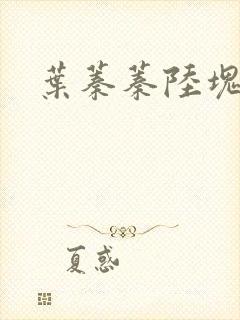 葉蓁蓁陸塊
夏惑